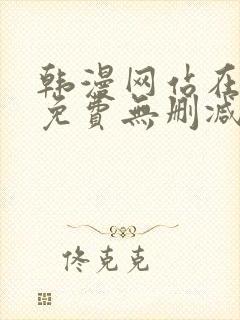 韩漫网站在
免費無删减
佟克克